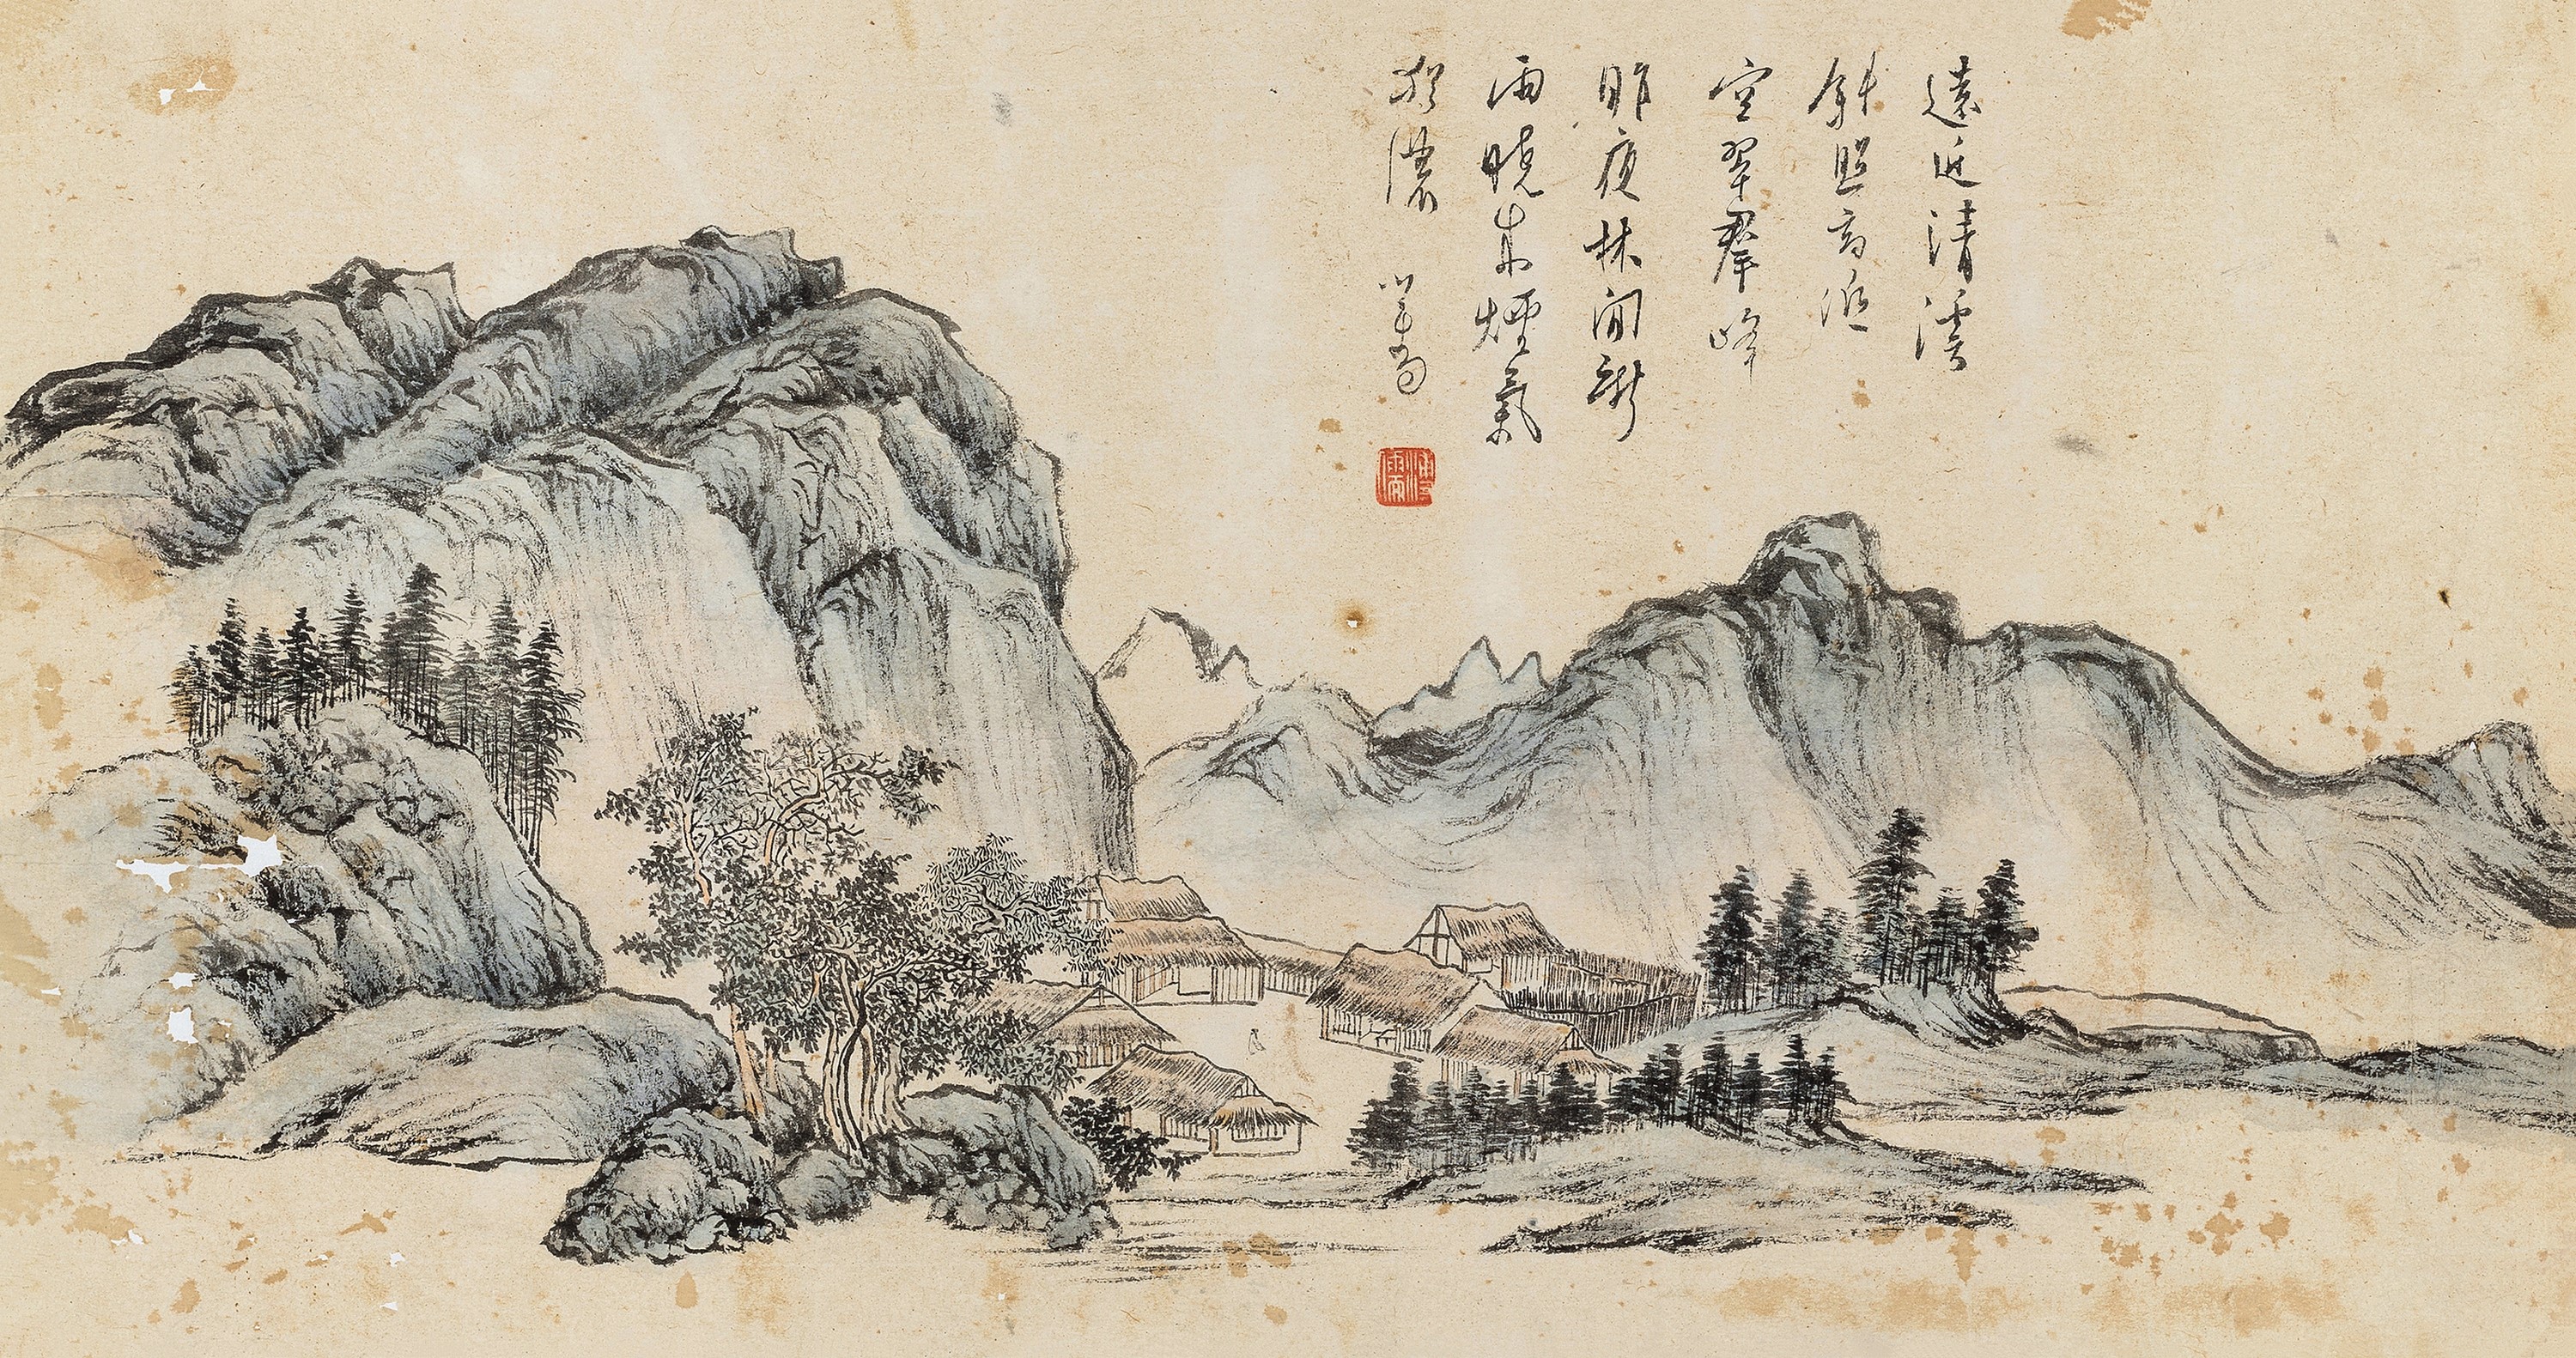 遠近清溪
斜照高低
空翠羣峰
昨夜林間新
雨曉來煙氣
猶濃 心畬
溥儒